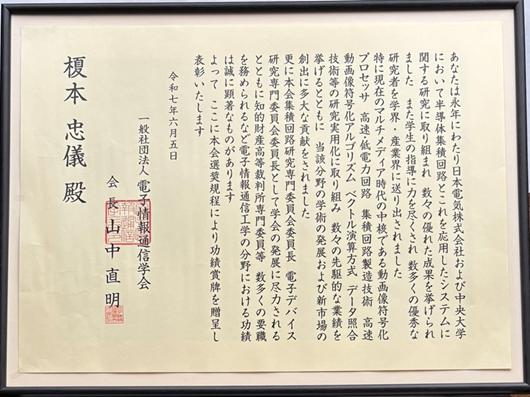 あなたは永年にわたり日本電気株式会社および中央大学
において半導体集積回路とこれを応用したシステムに
関する研究に取り組まれ 数々の優れた成果を挙げられ
ました また学生の指導に力を尽くされ 数多くの優秀な
研究者を学界・産業界に送り出されました
特に現在のマルチメディア時代の中核である動画像符号化
プロセッサ 高速低電力回路 集積回路製造技術 高速
動画像符号化アルゴリズム ベクトル演算方式 データ照合
技術等の研究実用化に取り組み 数々の先駆的な業績を
挙げるとともに 当該分野の学術の発展および新市場の
創出に多大な貢献をされました
更に本会集積回路研究専門委員会委員長 電子デバイス
研究専門委員会委員長として学会の発展に尽力される
とともに知的財産高等裁判所専門委員等 数多くの要職
を務められるなど電子情報通信工学の分野における功績
は誠に顕著なものがあります
よって ここに本会選奨規程により功績賞牌を贈呈し
表彰いたします
令和七年六月五日
一般社団法人 電子情報通信学会
会長 山中直明
榎本 忠儀 殿